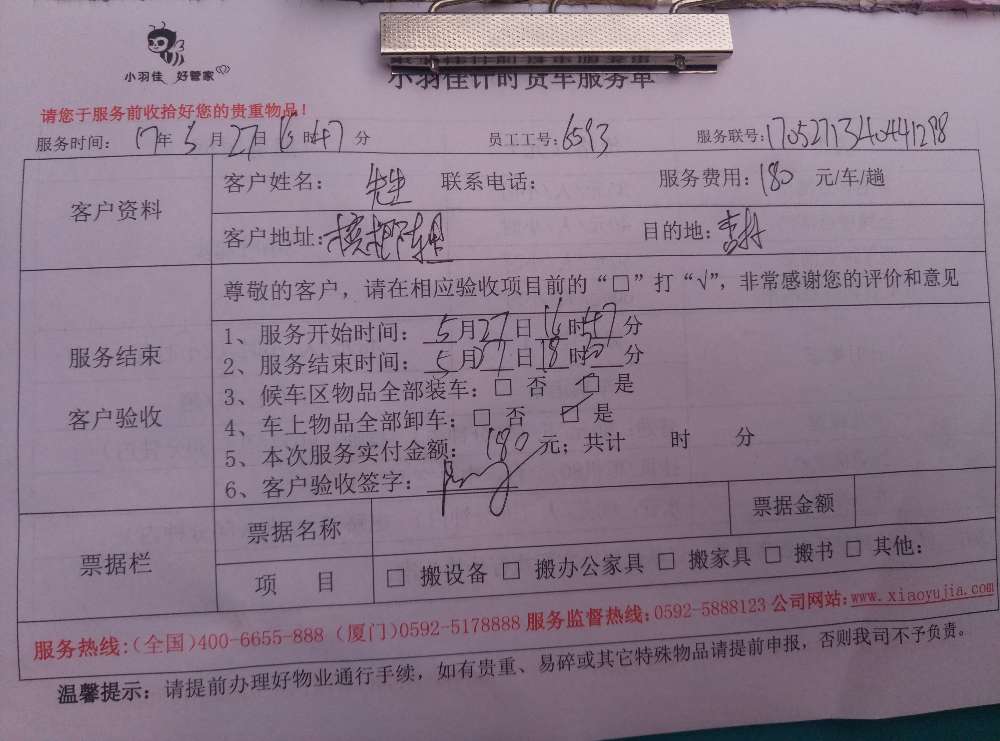 小羽佳 好管家
小羽佳计时货车服务单
请您于服务前收拾好您的贵重物品！
服务时间： 17年 5月 27日 16时47分 员工工号：6593 服务联号：1705271340441298
客户资料
客户姓名： 先生 联系电话： 服务费用：180 元/车/趟
客户地址： 目的地：
服务结束
客户验收
尊敬的客户，请在相应验收项目前的“□”打“√”，非常感谢您的评价和意见
1、服务开始时间： 5月27日16时47分
2、服务结束时间： 5月27日18时20分
3、候车区物品全部装车：□ 否 □ 是
4、车上物品全部卸车：□ 否 ☑ 是
5、本次服务实付金额： 180 元；共计 时 分
6、客户验收签字：
票据栏
票据名称 票据金额
项 目 □ 搬设备 □ 搬办公家具 □ 搬家具 □ 搬书 □ 其他：
服务热线：(全国)400-6655-888 (厦门)0592-5178888 服务监督热线：0592-5888123 公司网站：www.xiaoyujia.com
温馨提示：请提前办理好物业通行手续，如有贵重、易碎或其它特殊物品请提前申报，否则我司不予负责。